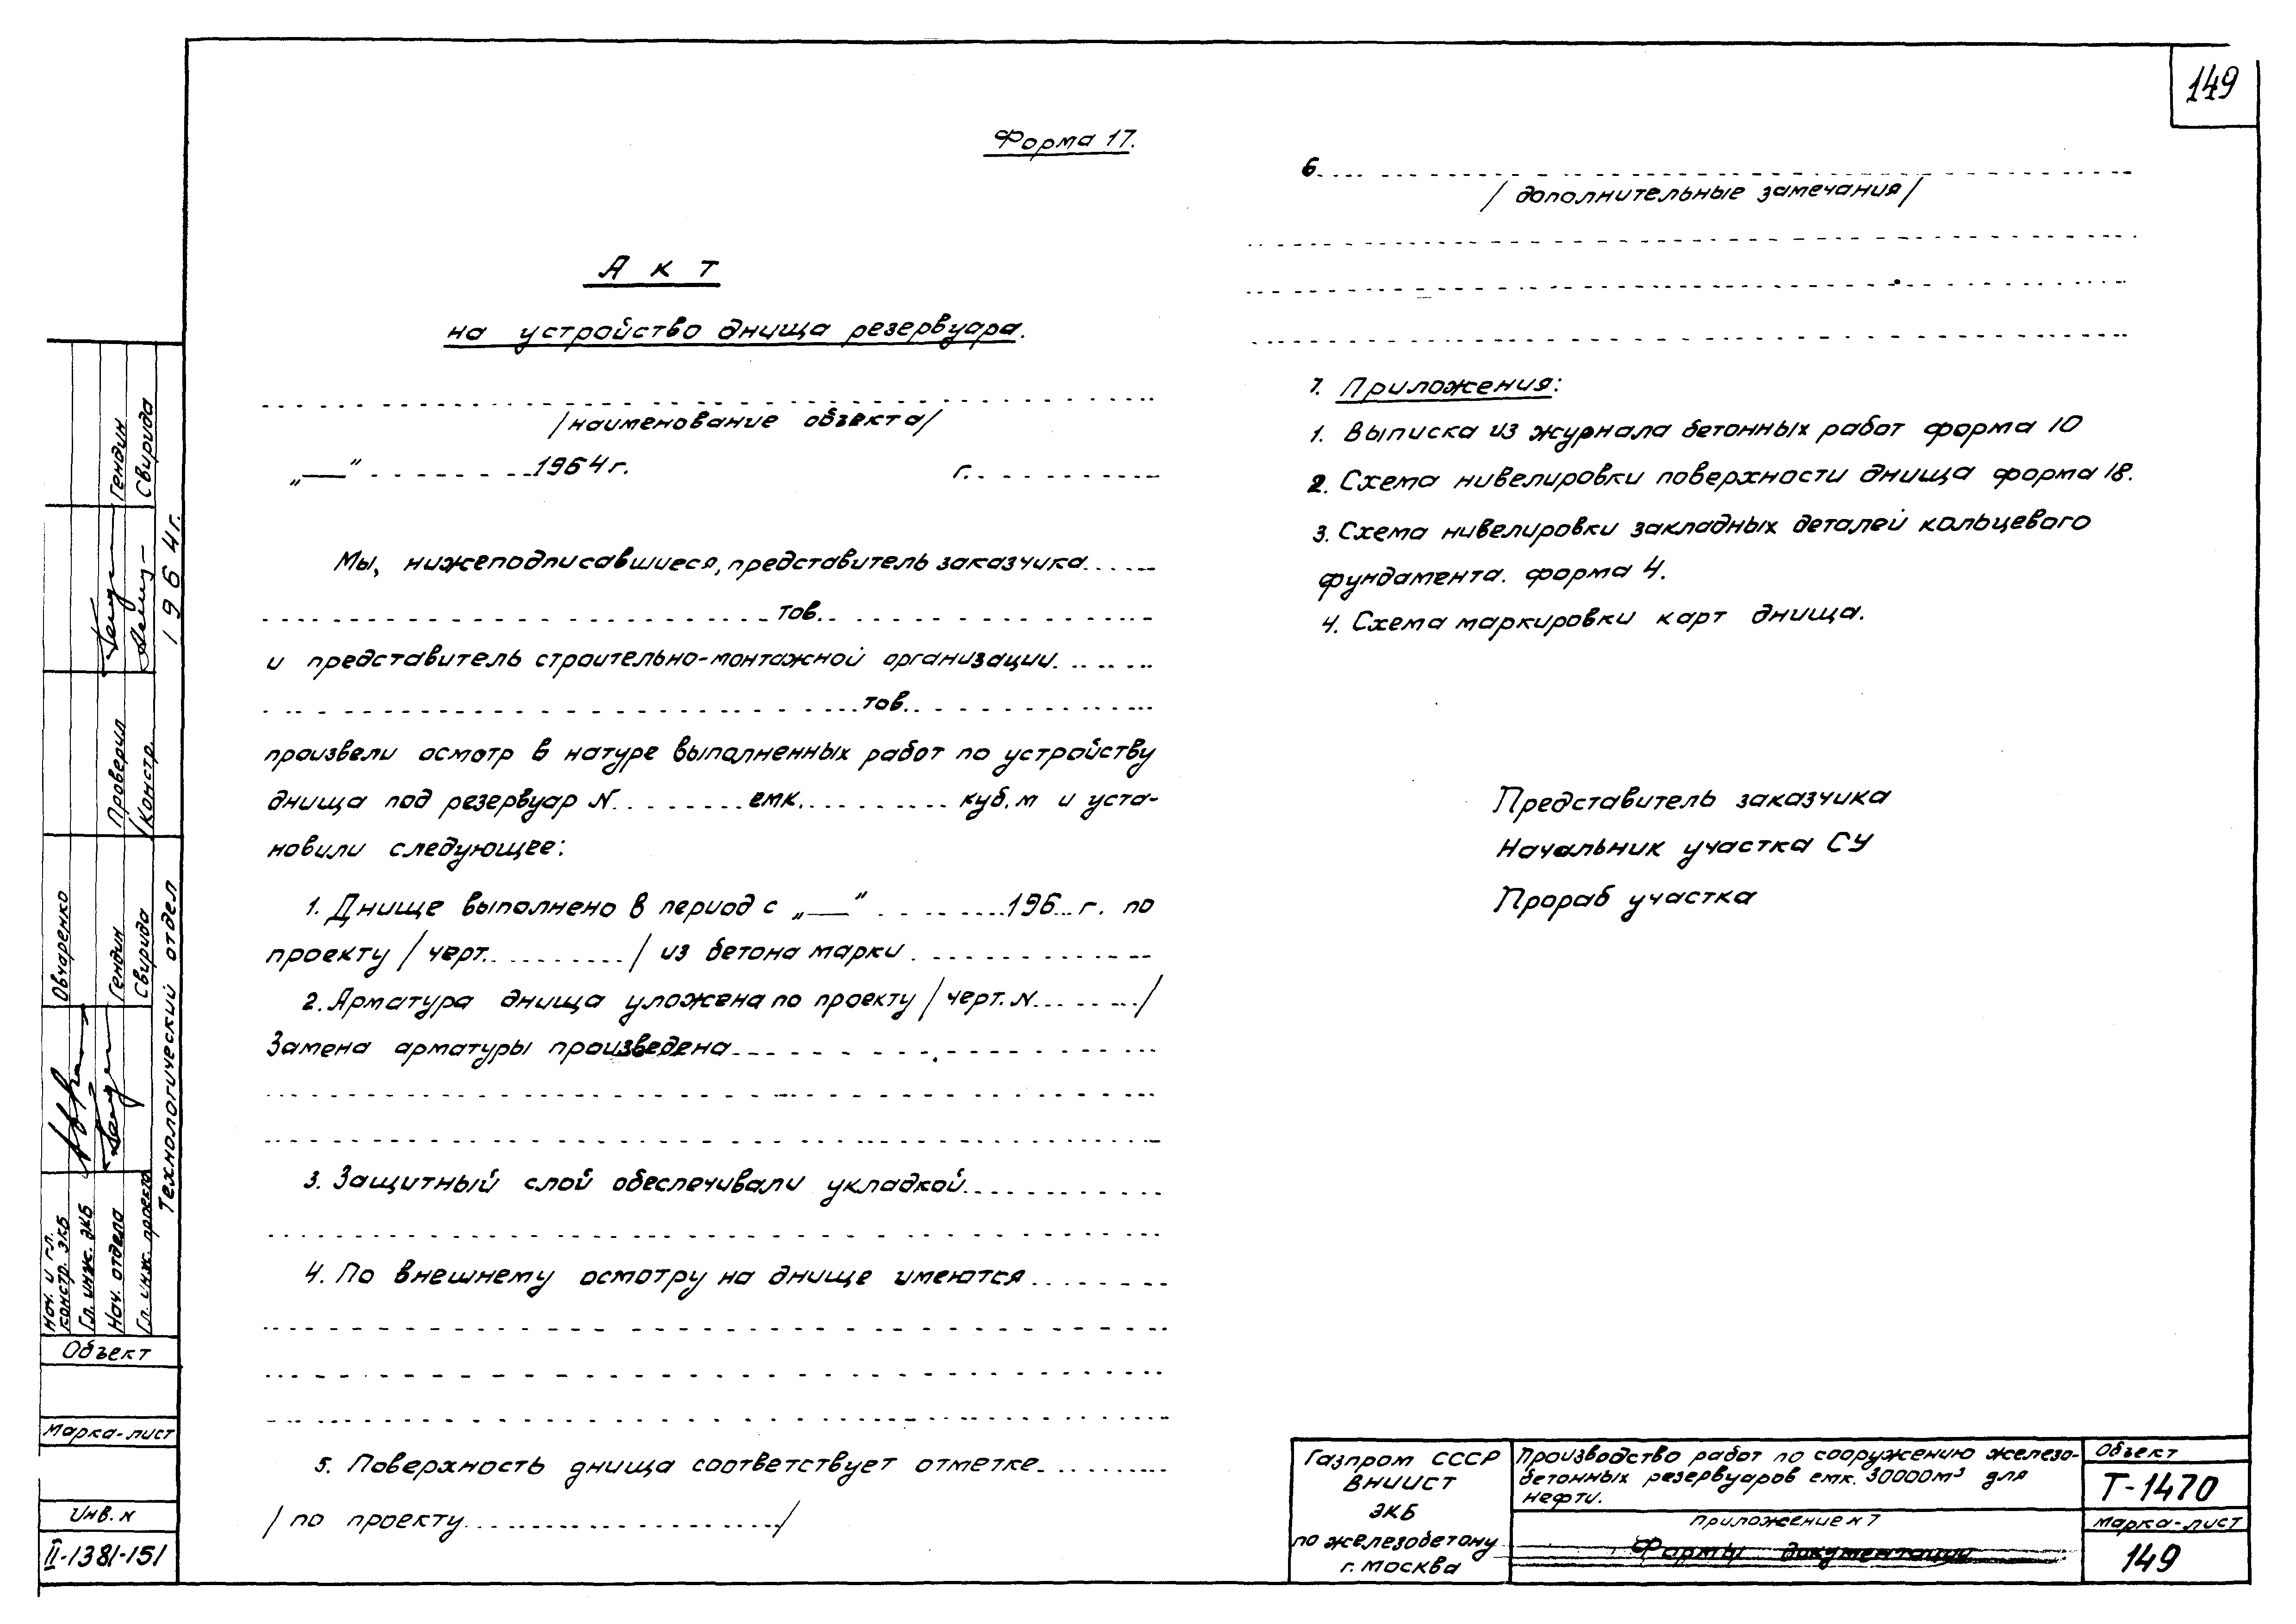 149
Форма 17.
А к т
на устройство днища резервуара.
/наименование объекта/
„—“ ........ 1964г. г. ........
Мы, нижеподписавшиеся, представитель заказчика......
........ тов. ........
и представитель строительно-монтажной организации. ......
........ тов. ........
произвели осмотр в натуре выполненных работ по устройству
днища под резервуар N. ........ емк. ........ куб.м и уста-
новили следующее:
1. Днище выполнено в период с „—“ ........ 196...г. по
проекту / черт. ........ / из бетона марки ........
2. Арматура днища уложена по проекту / черт. N. ....... /
Замена арматуры произведена ........
3. Защитный слой обеспечивали укладкой ........
4. По внешнему осмотру на днище имеются ........
5. Поверхность днища соответствует отметке ........
/ по проекту ........ /
6. ........
/ дополнительные замечания /
7. Приложения:
1. Выписка из журнала бетонных работ форма 10
2. Схема нивелировки поверхности днища форма 18.
3. Схема нивелировки закладных деталей кольцевого
фундамента. форма 4.
4. Схема маркировки карт днища.
Представитель заказчика
Начальник участка СУ
Прораб участка
Газпром СССР
ВНИИСТ
ЭКБ
по железобетону
г. Москва
Производство работ по сооружению железо-
бетонных резервуаров емк. 30000м³ для
нефти.
приложение N 7
Формы документации
Объект
Т-1470
марка-лист
149
Нач. и гл. констр. ЭКБ Овчаренко
Гл. инж. ЭКБ
Нач. отдела Гендин
Гл. инж. проекта Свирида
Проверил Гендин
Констр. Свирида
Технологический отдел 1964г.
Объект
Марка-лист
Инв. N
II-1381-151